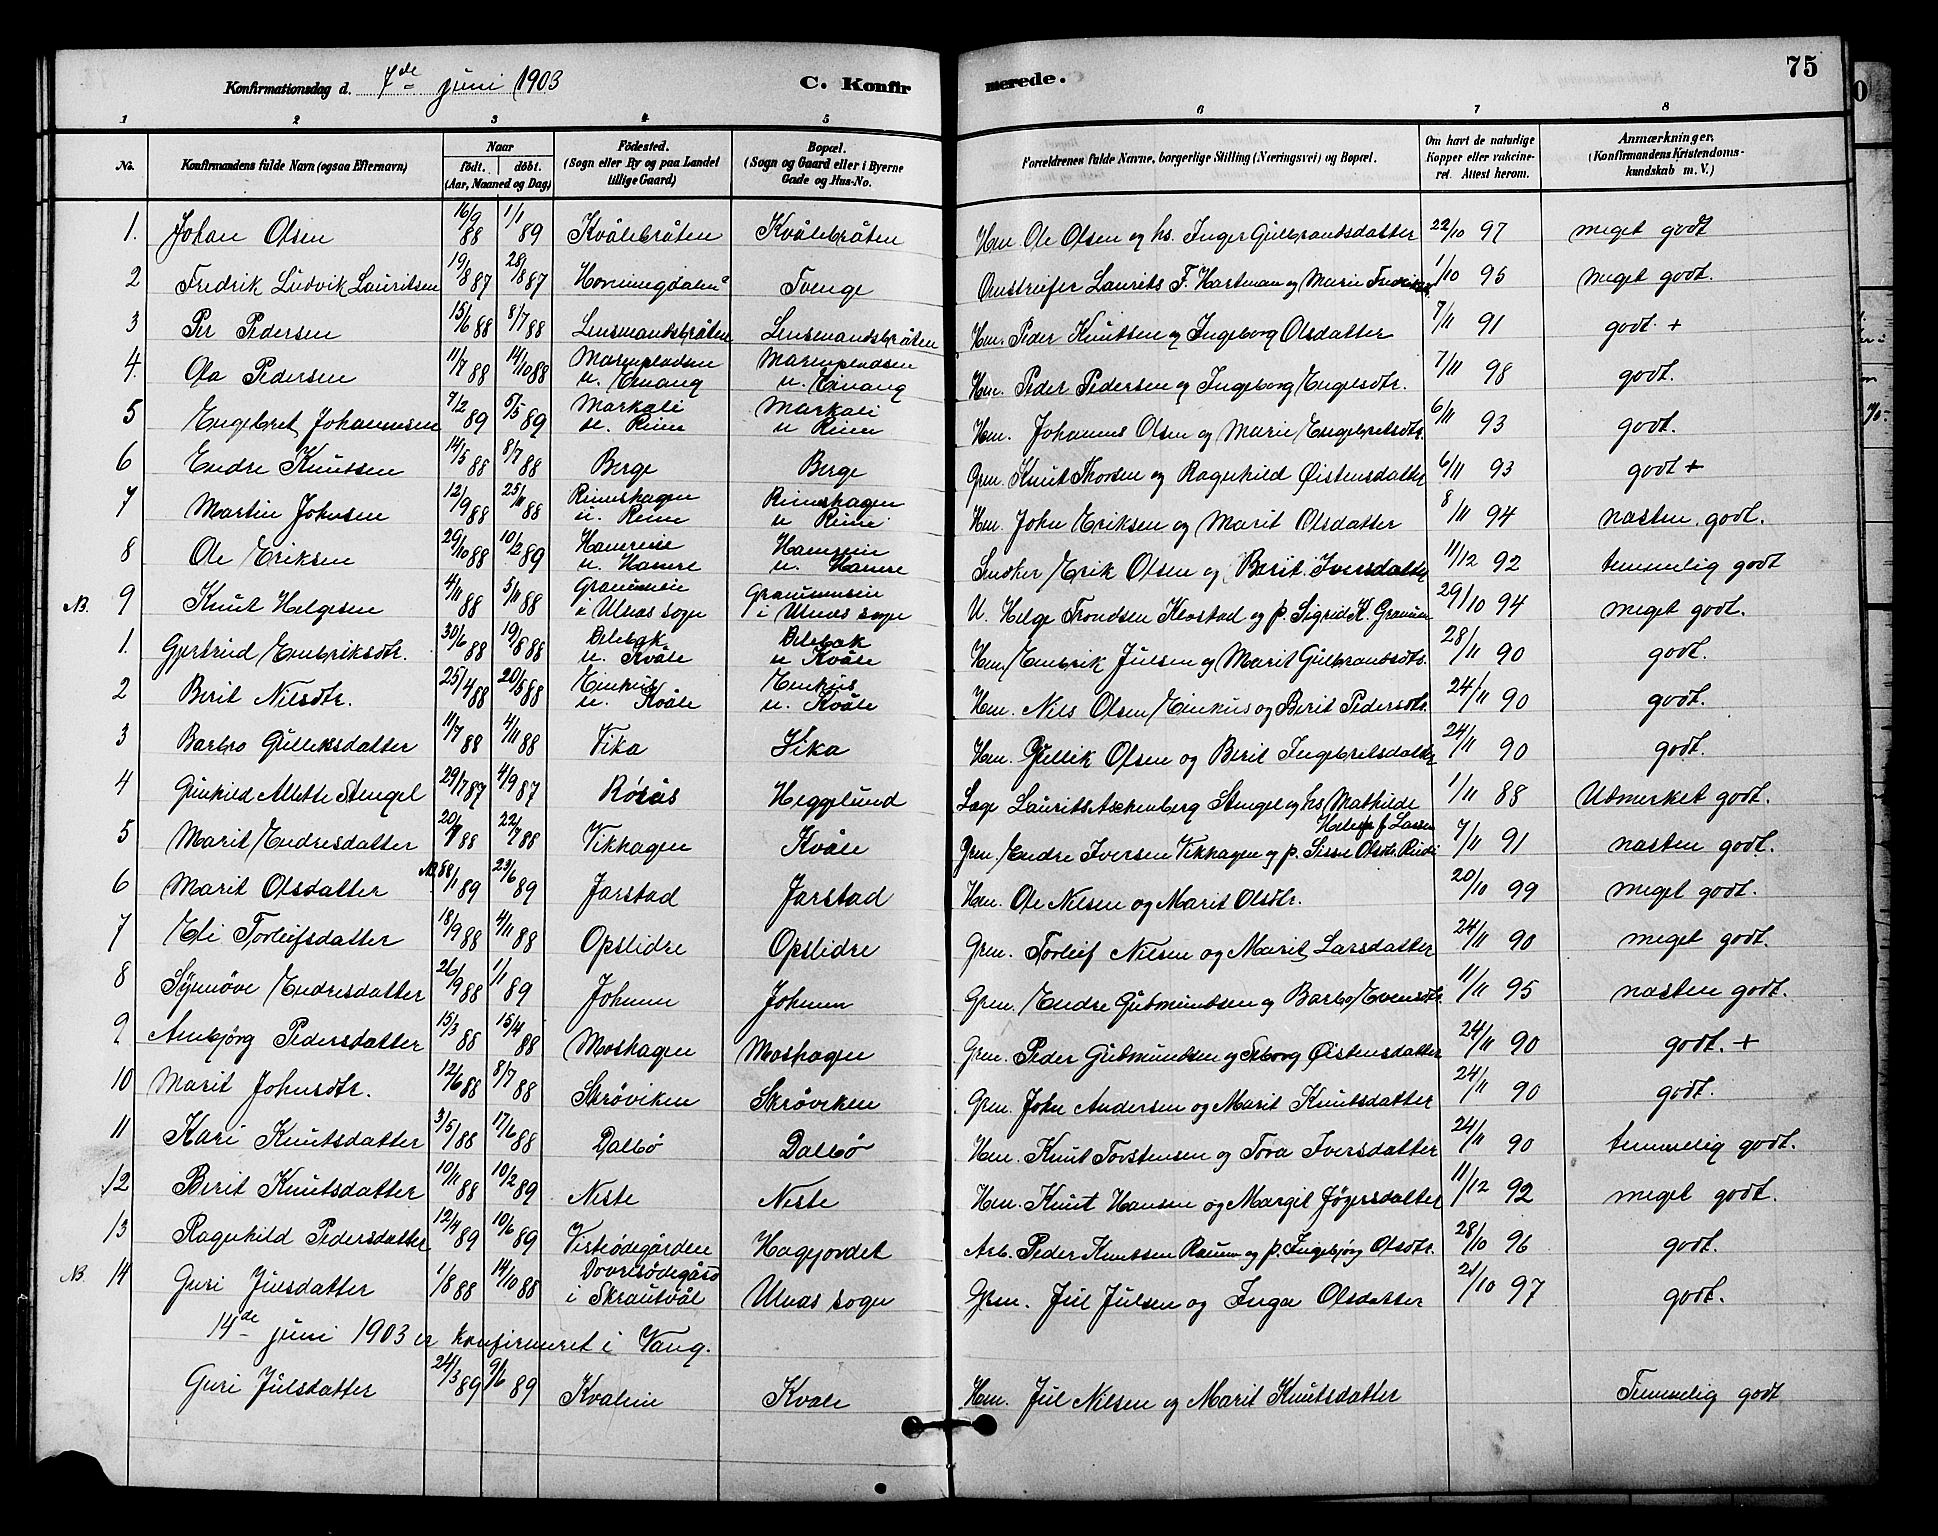 75
Konfirmationsdag d. 7de juni 1903 C. Konfirmerede.
1 2 3 4 5 6 7 8
No. Konfirmandens fulde Navn (ogsaa Efternavn) Naar født. døbt. (Aar, Maaned og Dag) Fødested. (Sogn eller By og paa Landet tillige Gaard) Bopæl. (Sogn og Gaard eller i Byerne Gade og Hus-No. Forældrenes fulde Navne, borgerlige Stilling (Næringsvei) og Bopæl. Om havt de naturlige Kopper eller vakcineret. Attest herom. Anmærkninger, (Konfirmandens Kristendomskundskab m. V.)
1. Johan Olsen 16/9 88 1/1 89 Kvålebråten Kvålebråten Hm. Ole Olsen og hs. Inger Gulbrandsdatter 22/10 97 meget godt
2 Fredrik Ludvik Lauritsen 19/8 87 28/8 87 Tvenge Omstreifer Laurits F. Hartman og Marie 1/10 95 meget godt.
3 Per Pedersen 15/6 88 8/7 88 Lensmandsbråten Lensmandsbråten Hm. Peder Knutsen og Ingeborg Olsdatter 7/11 91 godt +
4. Ola Pedersen 11/7 88 14/10 88 Marenpladsen u. Einang Marenpladsen u. Einang Hm. Peder Pedersen og Ingeborg Engelsdtr. 7/11 98 godt.
5 Engebret Johannesen 7/2 89 5/5 89 Markali u. Reien Markali u Reien Hm. Johannes Olsen og Marie Engebretsdtr. 6/11 93 godt.
6 Endre Knutsen 14/5 88 8/7 88 Berge Berge Grm. Knut Thorsen og Ragnhild Øistensdatter 6/11 93 godt +
7 Martin Johnsen 12/9 88 25/11 88 Hm. John Eriksen og Marit Olsdatter 8/11 94 næsten godt.
8 Ole Eriksen 29/10 88 10/2 89 u. Hamre u. Hamre Snekker Erik Olsen og Berit Iversdatter 11/12 92 temmelig godt
NB. 9 Knut Helgesen 4/11 88 5/11 88 i Ulnæs sogn i Ulnæs sogn U. Helge Trondsen Klostad og p. Sigrid K. Granum 29/10 94 meget godt.
1. Gjertrud Embriksdtr. 30/6 88 19/8 88 Blebak u. Kvåle Blebak u Kvåle Hm. Embrik Julsen og Marit Gulbrandsdtr. 28/11 90 godt.
2 Berit Nilsdtr. 25/4 88 20/5 88 Enehus u. Kvåle Enehus u. Kvåle Hm. Nils Olsen Enehus og Berit Pedersdtr. 24/11 90 godt.
3 Barbro Gulliksdatter 11/7 88 4/11 88 Vika Vika Hm. Gullik Olsen og Berit Ingebretsdatter 24/11 90 godt.
4 Gunhild Alette Stengel 29/7 87 4/9 87 Røsås Heggelund Læge Laurits Aschenberg Stengel og hs Mathilde f Larsen 1/11 88 Udmerket godt.
5 Marit Endresdatter 20/ 88 22/7 88 Vikhagen Kvåle Grm. Endre Iversen Vikhagen og p. Sissel Olsdtr. 7/11 91 næsten godt.
6 Marit Olsdatter NB. 88 /1 89 23/6 89 Jarstad Jarstad Hm. Ole Nilsen og Marit Olsdtr. 20/10 99 meget godt.
7 Eli Torleifsdatter 18/9 88 4/11 88 Opslidre Opslidre Grm. Torleif Nilsen og Marit Larsdatter 24/11 90 meget godt.
8 Synnøve Endresdatter 26/9 88 1/1 89 Grm. Endre Gudmundsen og Barbro Evensdtr. 11/11 95 næsten godt.
9 Ambjørg Pedersdatter 15/3 88 15/4 88 Moshagen Moshagen Grm. Peder Gudmundsen og Seborg Øistensdatter 24/11 90 godt. +
10 Marit Johnsdtr. 12/6 88 8/7 88 Skrøviken Skrøviken Grm. John Andersen og Marit Knutsdatter 24/11 90 godt.
11 Kari Knutsdatter 3/5 88 17/6 88 Dalbø Dalbø Hm. Knut Torstensen og Tora Iversdatter 24/11 90 temmelig godt.
12 Berit Knutsdatter 10/11 88 10/2 89 Neste Neste Hm. Knut Hansen og Margit Jøgersdatter 11/12 92 meget godt.
13 Ragnhild Pedersdatter 12/4 89 10/6 89 Hagejordet Arb. Peder Knutsen og p. Ingebjørg Olsdtr. 28/10 96 godt.
NB. 14 Guri Julsdatter 1/8 88 14/10 88 i Skrautvål Ulnæs sogn Grm. Jul Julsen og Inga Olsdatter 21/10 97 godt.
14de juni 1903 er konfirmeret i Vang.
Guri Julsdatter 24/3 89 9/6 89 Kvalein Kvale Hm. Jul Nilsen og Marit Knutsdatter Temmelig godt